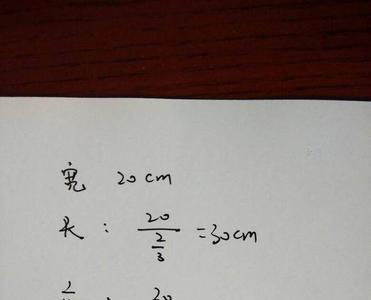 宽 20cm
长: 20/(2/3) =30cm